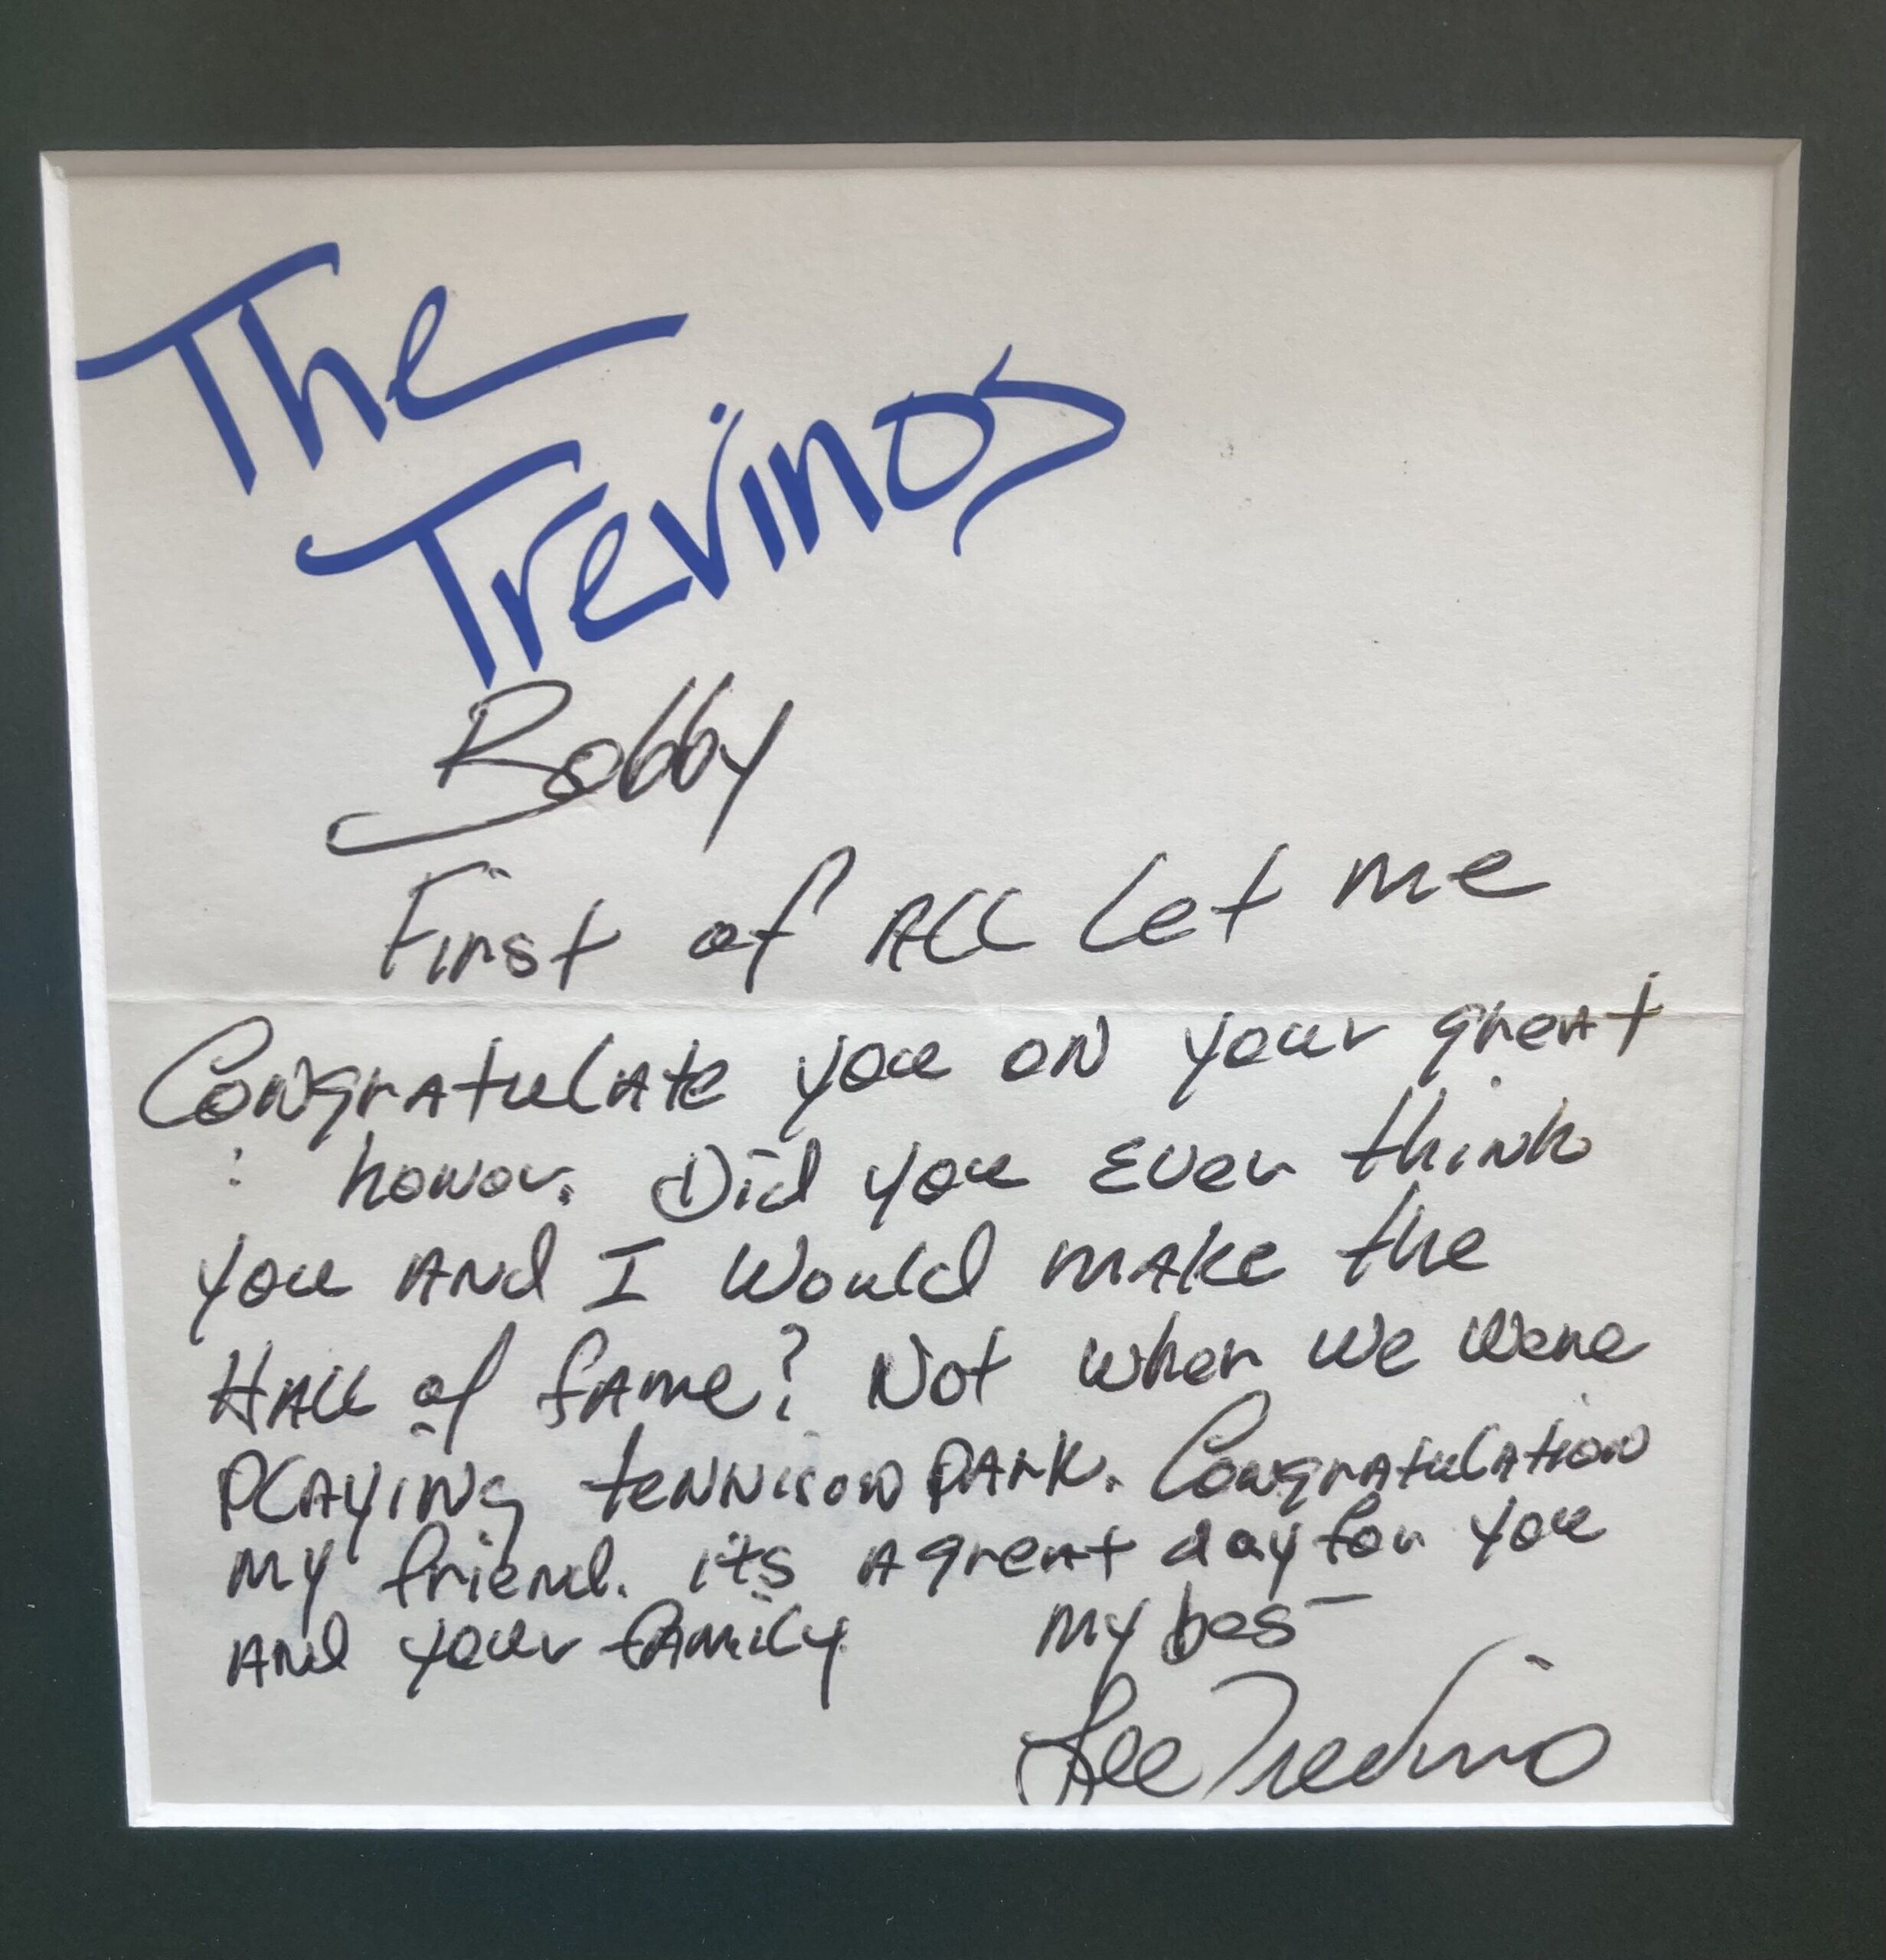 The
Trevinos
Bobby
First of ALL Let me
CongrAtulAte you oN your greAt
honor. Did you Ever thiNk
you ANd I Would mAke the
HALL of fAme? Not when we were
PLAYiNg teNNisoN PArk. CongrAtulAtioN
my friend. its A greAt day for you
ANd your fAmiLy my best
Lee Trevino